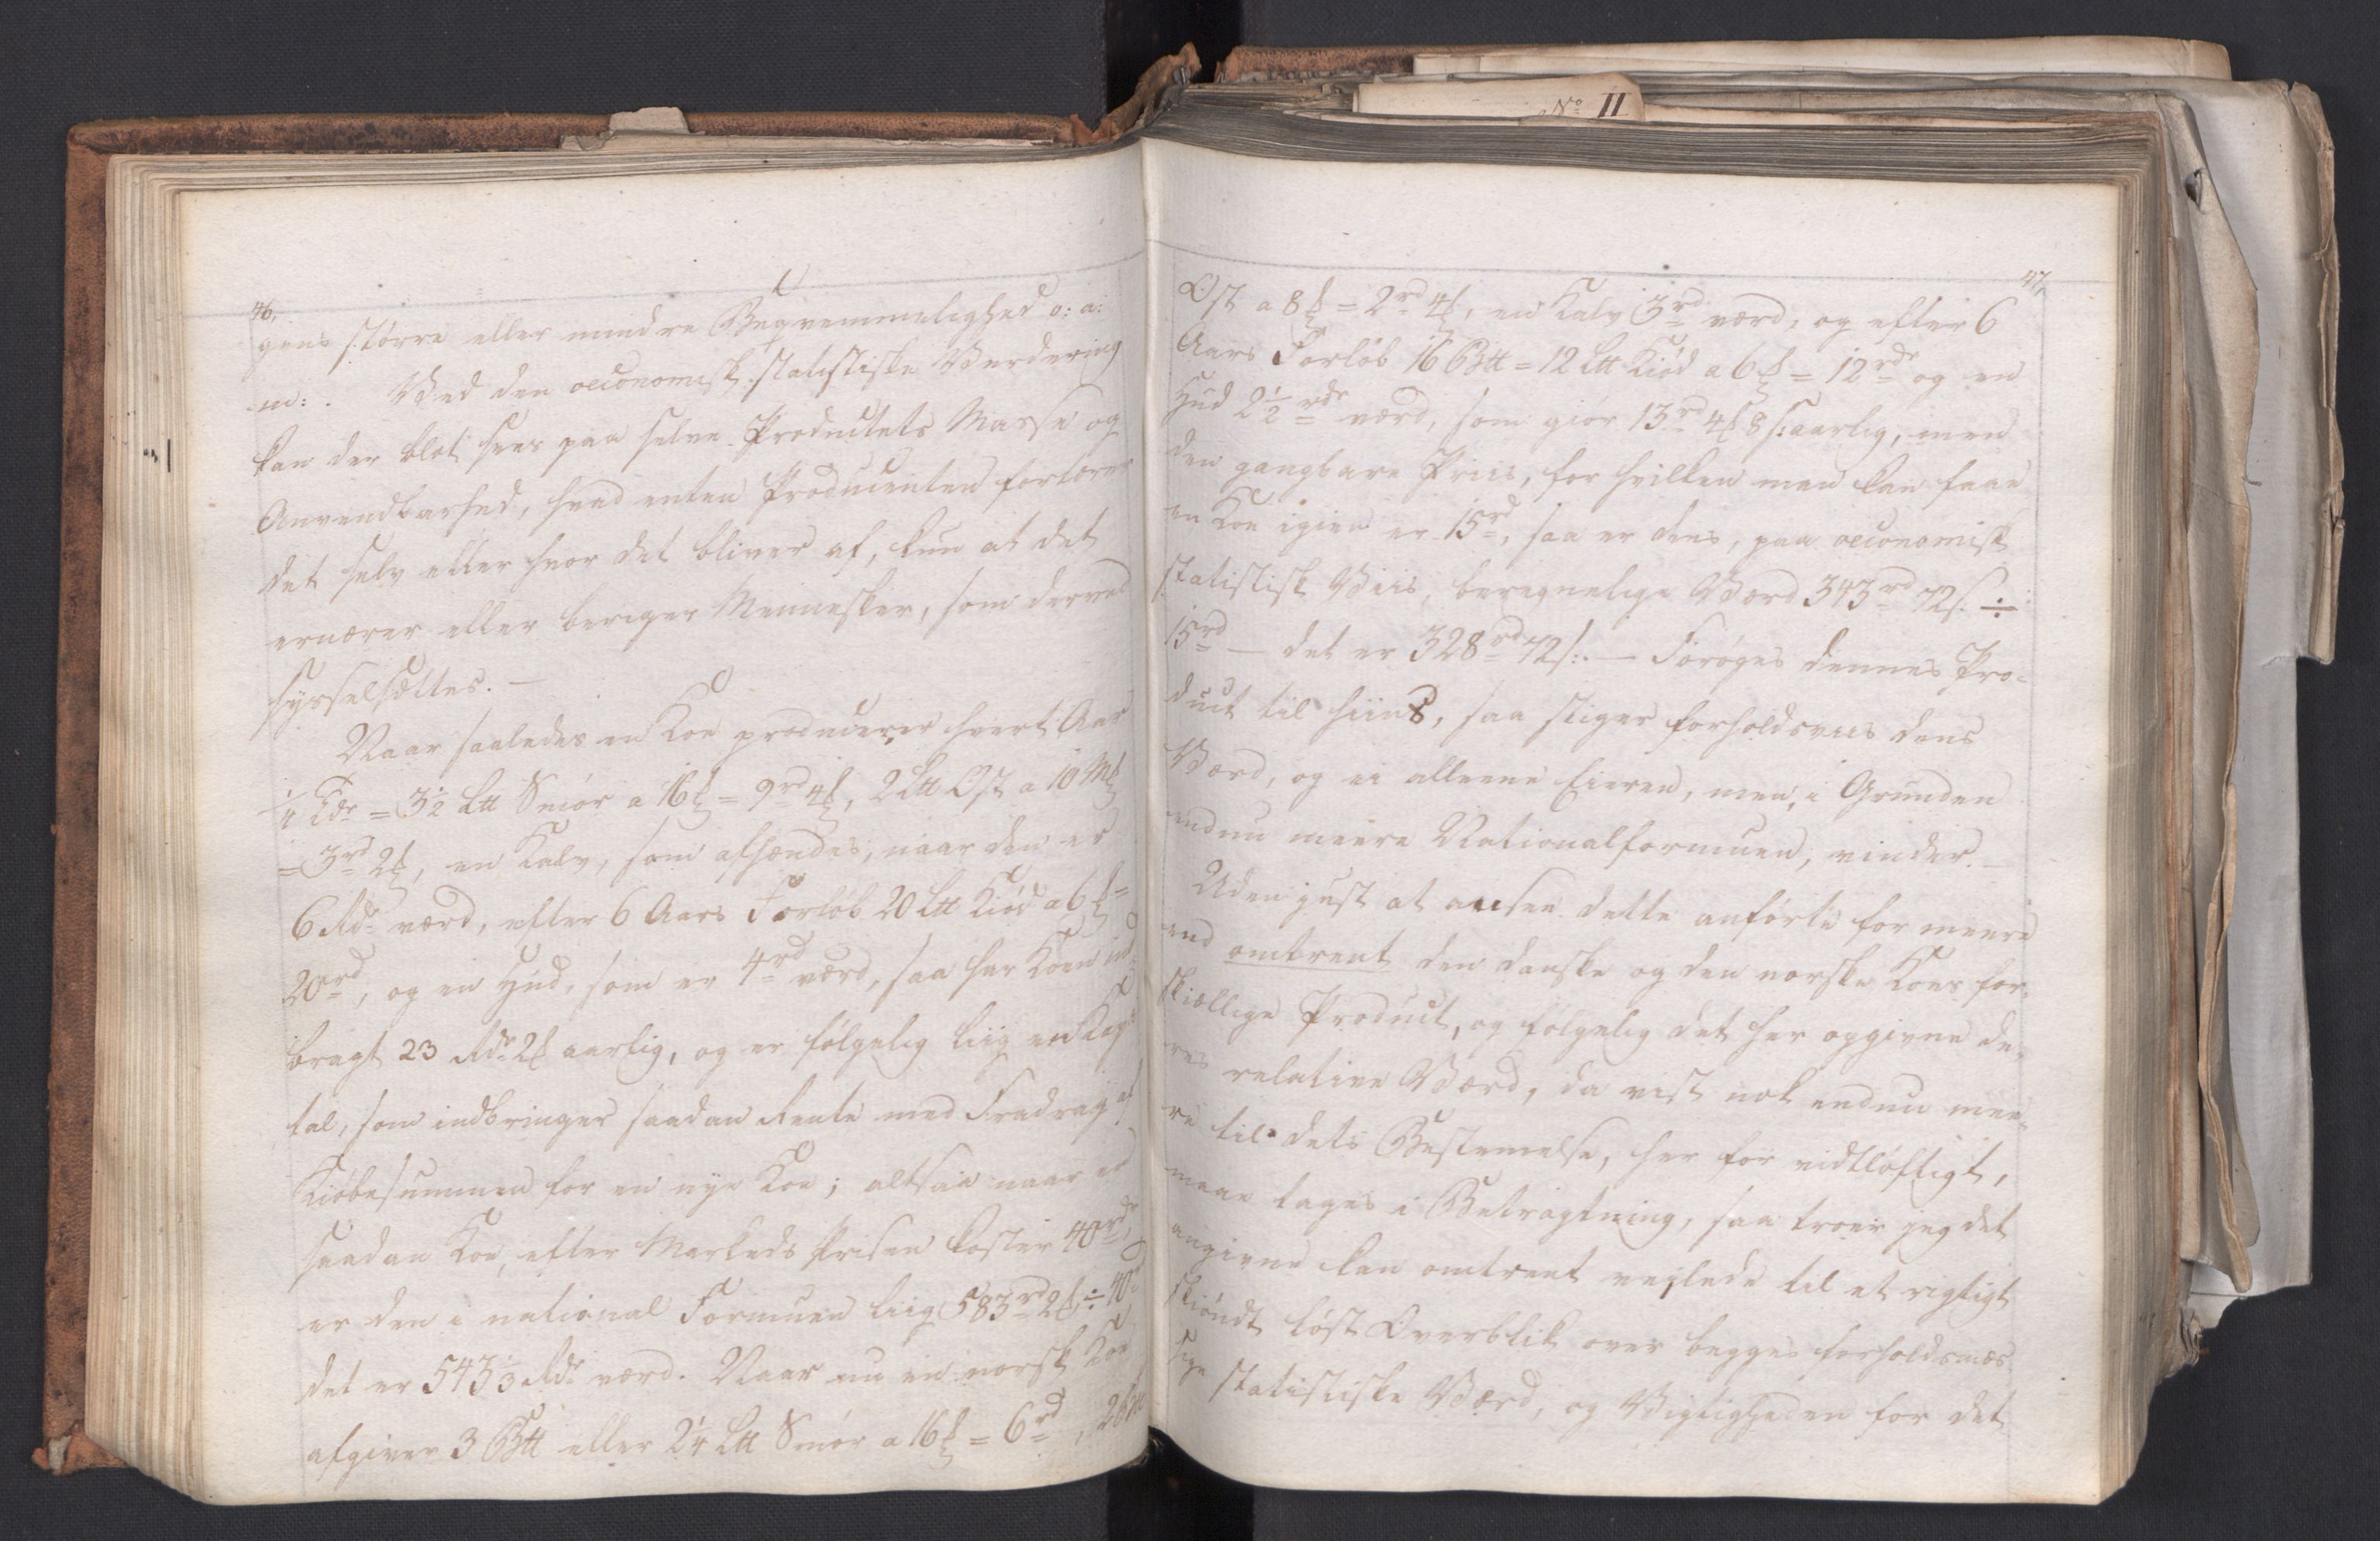 46.
gens större eller mindre Beqvemmelighed o: a:
m: . Ved den oeconomisk-statistiske Vurdering
kan der blot sees paa selve Productets Masse og
Anvendbarhed, hvad enten Producenten fortærer
det selv eller hvor det bliver af, kun at det
ernærer eller beriger Mennesker, som derved
sysselsættes. —
Naar saaledes en Koe producerer hvert Aar
1/4 Tdr = 3 1/2 Ltt Smör a 16 = 9 rd 4, 2 Ltt Ost a 10 Mk
= 3 rd 2, en Kalv, som afhændes, naar den er
6 Rdr værd, efter 6 Aars Forløb 20 Ltt Kiød a 6 =
20 rd, og en Hud, som er 4 rd værd, saa har Koen ind
bragt 23 Rdr 2 aarlig, og er følgelig liig en Kapi
tal, som indbringer saadan Rente med Fradrag af
Kiøbesummen for en nye Koe; altsaa naar en
saadan Koe, efter Markeds Prisen koster 40 rdr,
er den i national Formuen liig 583 rd 2 ÷ 40 rd
det er 543 1/3 Rdr værd. Naar nu en norsk Koe
afgiver 3 Btt eller 2 1/4 Ltt Smör a 16 = 6 rd, 2 Btt
No II
47,
Ost a 8 = 2 rd 4, en Kalv 3 rd værd, og efter 6
Aars Forløb 16 Btt = 12 Ltt Kiød a 6 = 12 rdr og en
Hud 2 1/2 rdr værd, som giör 13 rd 4 8 s: aarlig, men
den gangbare Priis, for hvilken man kan faae
en Koe igien er 15 rd, saa er dens, paa oeconomisk
statistisk Viis, beregnelige Værd 343 rd 72 s. ÷
15 rd — det er 328 rd 72 s:. — Forøges dennes Pro-
duct til hiins, saa stiger forholdsviis dens
Værd, og ei alleene Eieren, men, i Grunden
endnu meere Nationalformuen, vinder. —
Uden just at ansee dette anførte for meere
end omtrent den danske og den norske Koes for-
skiællige Product, og følgelig det her opgivne de-
res relative Værd, da vist nok endnu mee-
re til dets Bestemelse, her for vidtløftigt,
maae tages i Betragtning, saa troer jeg det
angivne kan omtrent veilede til et rigtigt
skiøndt løst Overblik over begges forholdsmæs-
sige statistiske Værd, og Vigtigheden for det